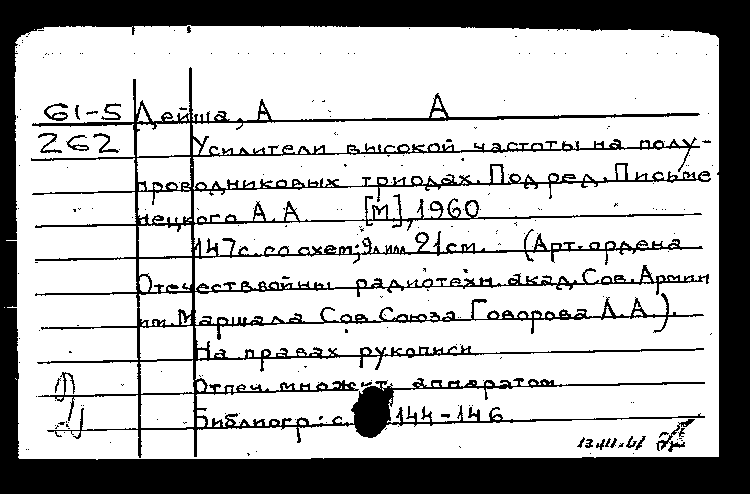 61-5 Дейша, А А
262 Усилители высокой частоты на полу-
проводниковых триодах. Под ред. Письме
нецкого А.А. [М], 1960
147с. со схем; 9л. илл. 21см. (Арт. ордена
Отечеств.войны радиотехн. акад. Сов. Армии
им. Маршала Сов Союза Говорова Л.А.).
На правах рукописи
Отпеч. множит. аппаратом
Библиогр: с. 144-146.
13.III.61